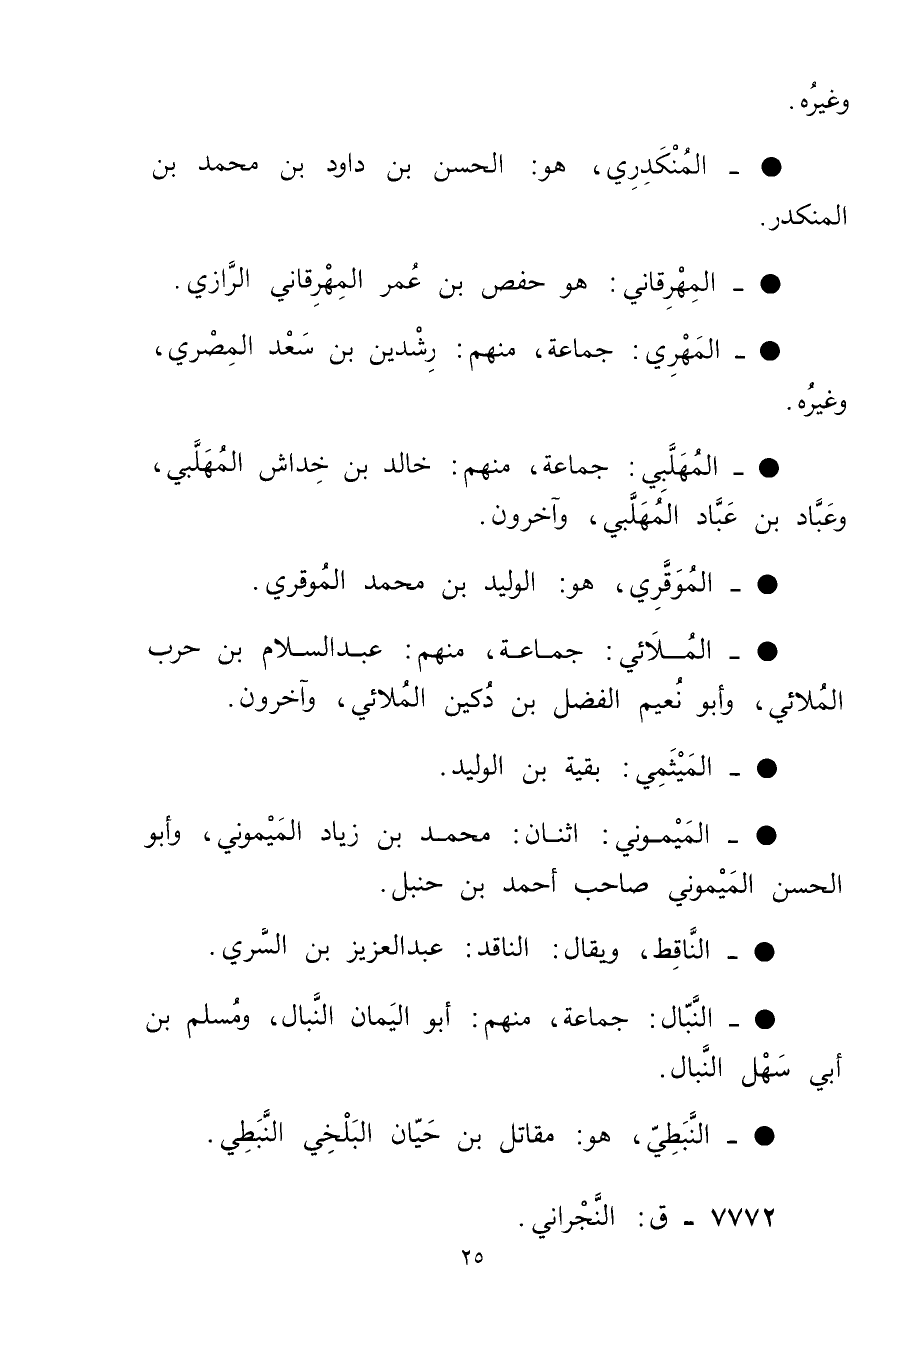 وغيرُه.
● ـ المُنْكَدِرِي، هو: الحسن بن داود بن محمد بن
المنكدر.
● ـ المِهْرِقاني: هو حفص بن عُمر المِهْرِقاني الرَّازي.
● ـ المَهْرِي: جماعة، منهم: رِشْدين بن سَعْد المِصْري،
وغيرُه.
● ـ المُهَلَّبِي: جماعة، منهم: خالد بن خِداش المُهَلَّبي،
وعَبَّاد بن عَبَّاد المُهَلَّبي، وآخرون.
● ـ المُوَقَّرِي، هو: الوليد بن محمد المُوقري.
● ـ المُـلَائي: جماعة، منهم: عبدالسلام بن حرب
المُلائي، وأبو نُعيم الفضل بن دُكين المُلائي، وآخرون.
● ـ المَيْثَمِي: بقية بن الوليد.
● ـ المَيْموني: اثنان: محمد بن زياد المَيْموني، وأبو
الحسن المَيْموني صاحب أحمد بن حنبل.
● ـ النَّاقِط، ويقال: الناقد: عبدالعزيز بن السَّري.
● ـ النَّبّال: جماعة، منهم: أبو اليَمان النَّبال، ومُسلم بن
أبي سَهْل النَّبال.
● ـ النَّبَطِيّ، هو: مقاتل بن حَيّان البَلْخِي النَّبَطِي.
٧٧٧٢ ـ ق: النَّجْراني.
٢٥